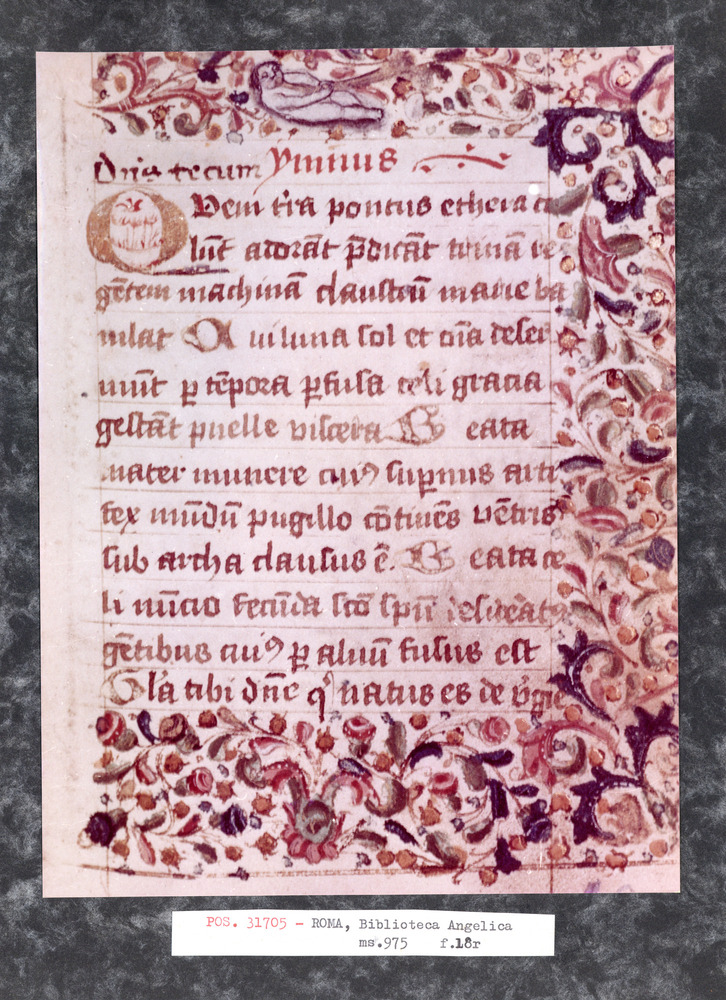 Dn̄s tecum Ymnus
Quem t̄ra pontus ethera co
lūt adorāt p̄dicāt trinā re
gētem machinā claustrū marie ba
iulat Cui luna sol et oīa deser
uiūt p tēpora pfusa celi gracia
gestāt puelle viscera Beata
mater munere cuiꝰ supnus arti
fex mūdū pugillo cōtinēs vētris
sub archa clausus ē. Beata ce
li nūcio fecūda sc̄o sp̄u desideratꝰ
gētibus cuiꝰ p aluū fusus est
Gl̄a tibi dn̄e qͥ natus es de v̓gīe
POS. 31705 - ROMA, Biblioteca Angelica
ms.975 f.18r